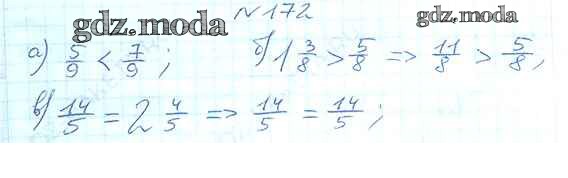 gdz.moda № 172 gdz.moda
а) 5/9 < 7/9 ; б) 1 3/8 > 5/8 => 11/8 > 5/8 ,
в) 14/5 = 2 4/5 => 14/5 = 14/5 ;